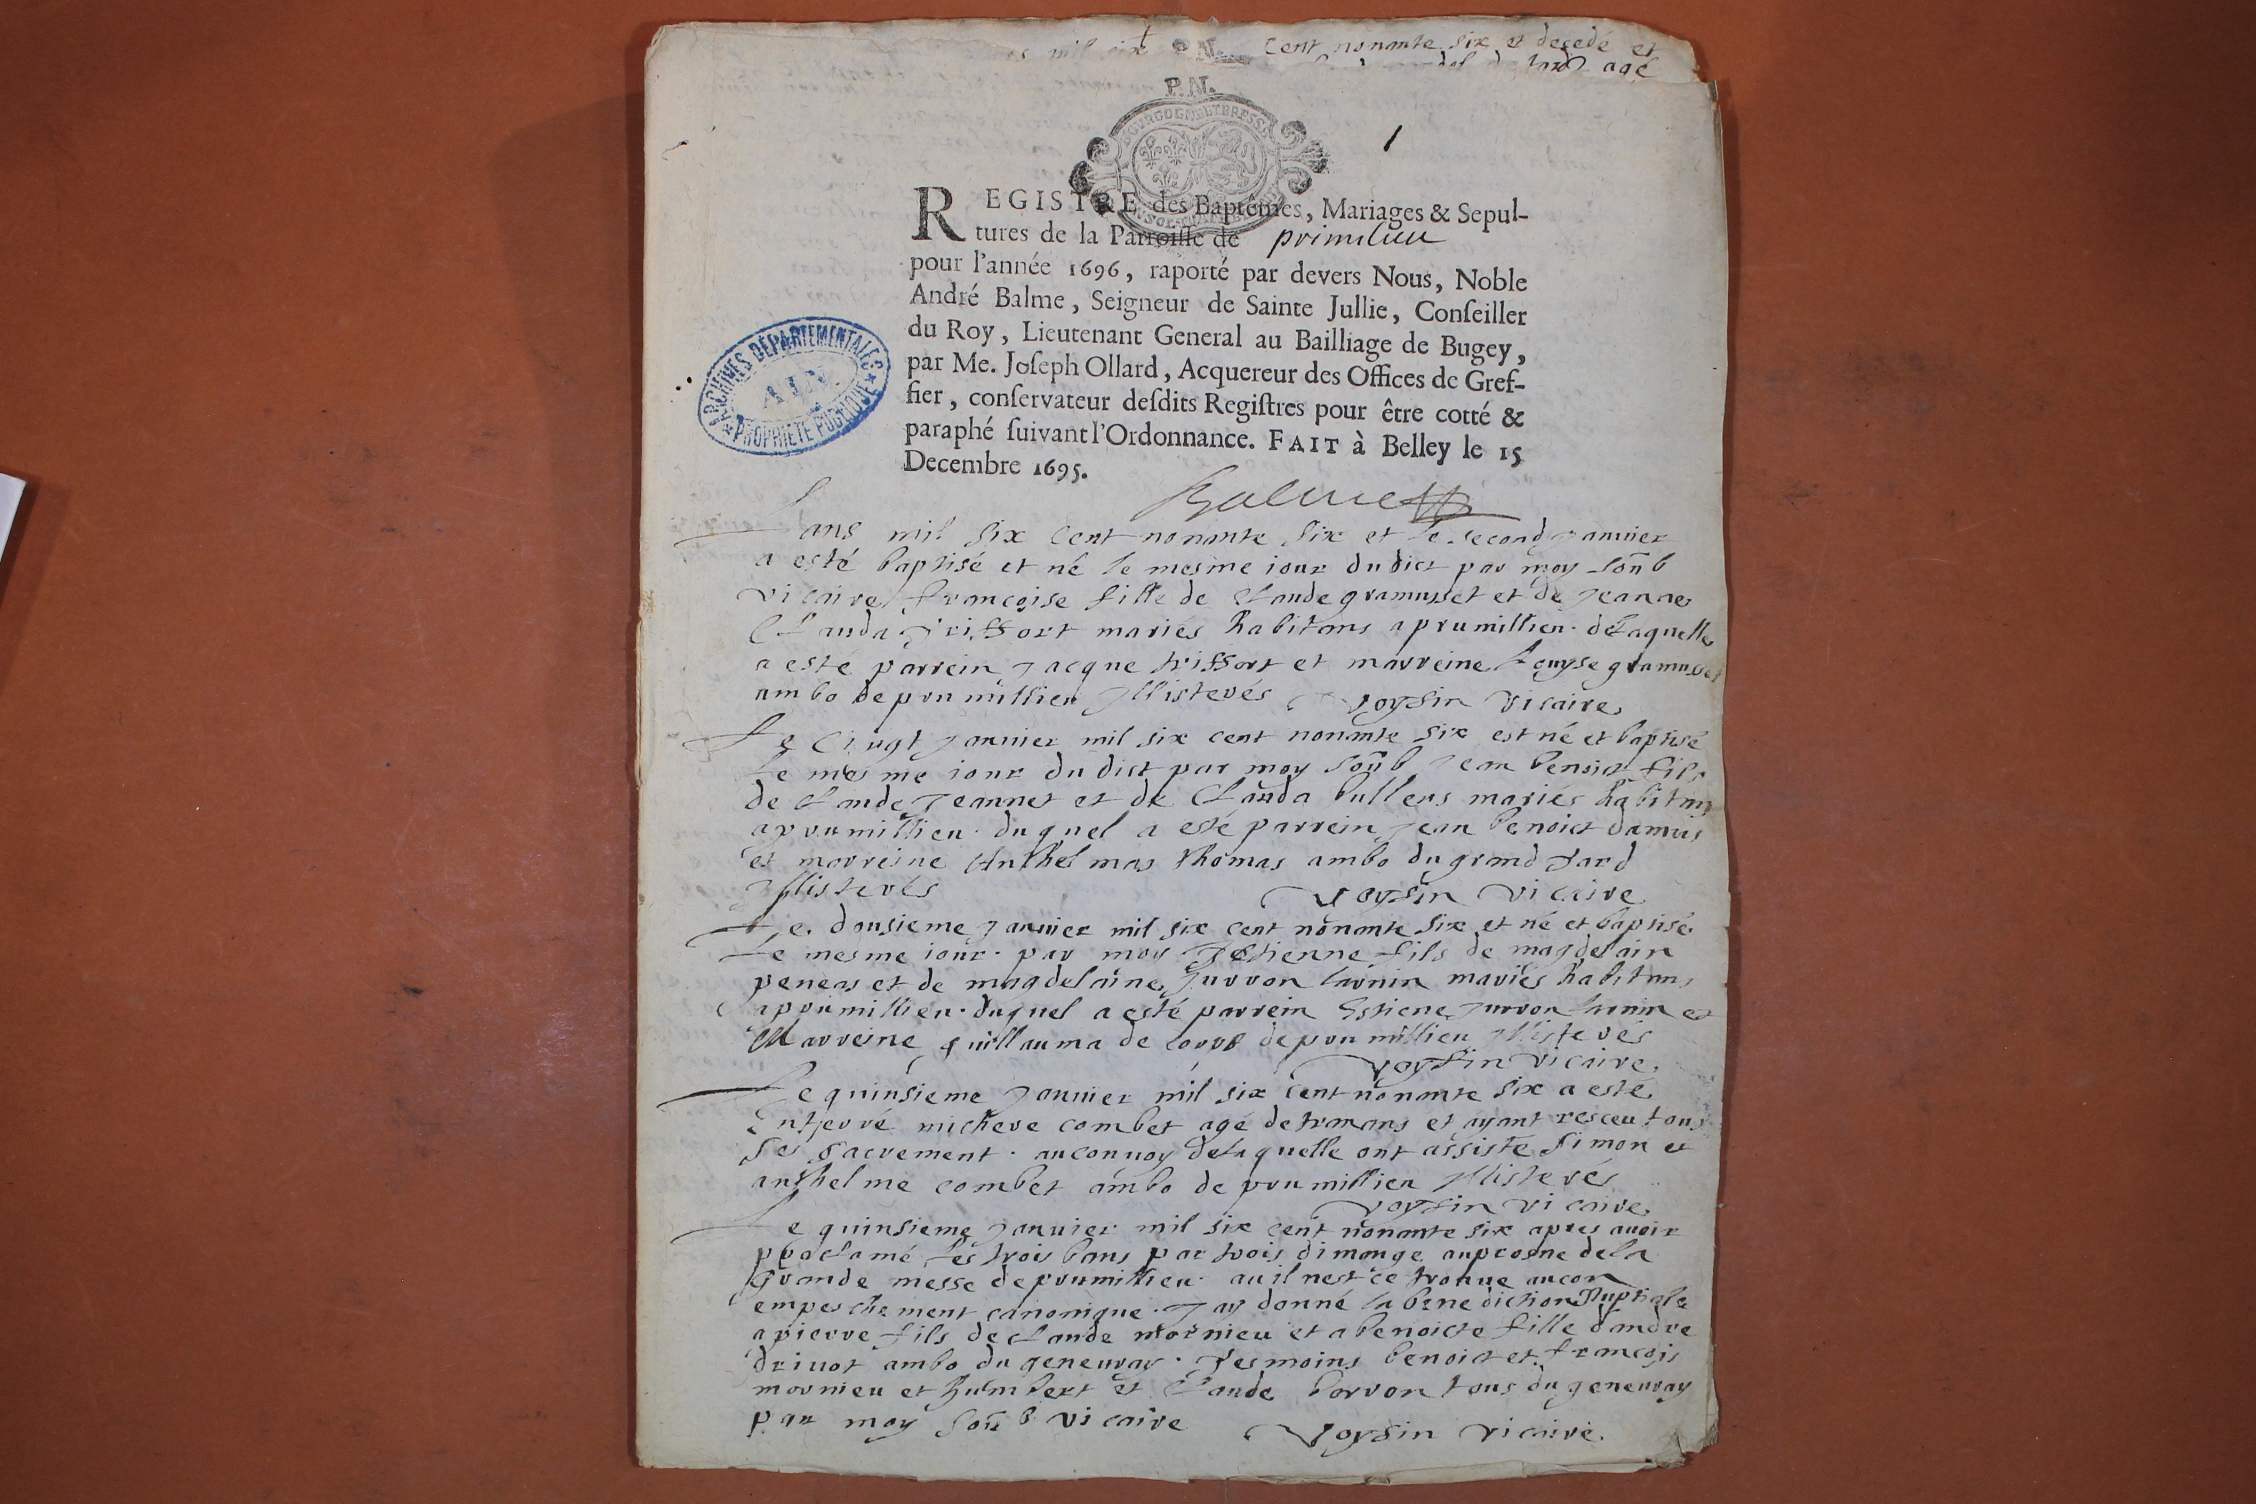 cent nonante six et decedé et
agé
P. N.
P. N.
BOURGOGNE ET BRESSE
1
REGISTRE des Baptêmes, Mariages & Sepul-
tures de la Parroisse de primilieu
pour l'année 1696, raporté par devers Nous, Noble
André Balme, Seigneur de Sainte Jullie, Conseiller
du Roy, Lieutenant General au Bailliage de Bugey,
par Me. Joseph Ollard, Acquereur des Offices de Gref-
fier, conservateur desdits Registres pour être cotté &
paraphé suivant l'Ordonnance. FAIT à Belley le 15
Decembre 1695.
ARCHIVES DÉPARTEMENTALES
AIN
PROPRIÉTÉ PUBLIQUE
Balme
Lans mil six cent nonante six et le second janvier
a esté baptisé et né le mesme iour dudict par moy soub
vicaire francoise fille de Claude gramusset et de jeanne
Clauda triffort mariés habitans a prumillieu delaquelle
a esté parrein jacque triffort et marreine Louyse gramusset
ambo de prumillieu Illisterés Voysin vicaire
Le cinqt janvier mil six cent nonante six est né et baptisé
Le mesme iour dudict par moy soub jean benoict fils
de Claude jeannet et de Clauda bullens mariés habitans
a prumillieu duquel a esté parrein jean benoict damuis
et marreine Anthelmas thomas ambo du grand
Illisterés Voysin vicaire
Le dousieme janvier mil six cent nonante six et né et baptisé
Le mesme iour par moy Estienne fils de magdelain
peneas et de magdelaine jurron mariés habitans
a prumillieu duquel a esté parrein Estiene jurron et
Marreine guillauma de de prumillieu Illisterés
Voysin vicaire
Le quinsieme janvier mil six cent nonante six a esté
Enterré combet agé de et ayant resceu tous
ses sacrement au convoy delaquelle ont assisté simon et
anthelme combet ambo de prumillieu Illisterés
Voysin vicaire
Le quinsieme janvier mil six cent nonante six apres avoir
proclamé les trois bans par trois dimange au prosne de la
grande messe de prumillieu au il nest ce trouue aucon
empeschement canonique jay donné la benediction Nuptiale
a pierre fils de claude mornieu et a benoicte fille dandre
drivot ambo du geneuray Tesmoins benoict et francois
mornieu et humbert et Claude borron tous du geneuray
par moy soub vicaire Voysin vicaire